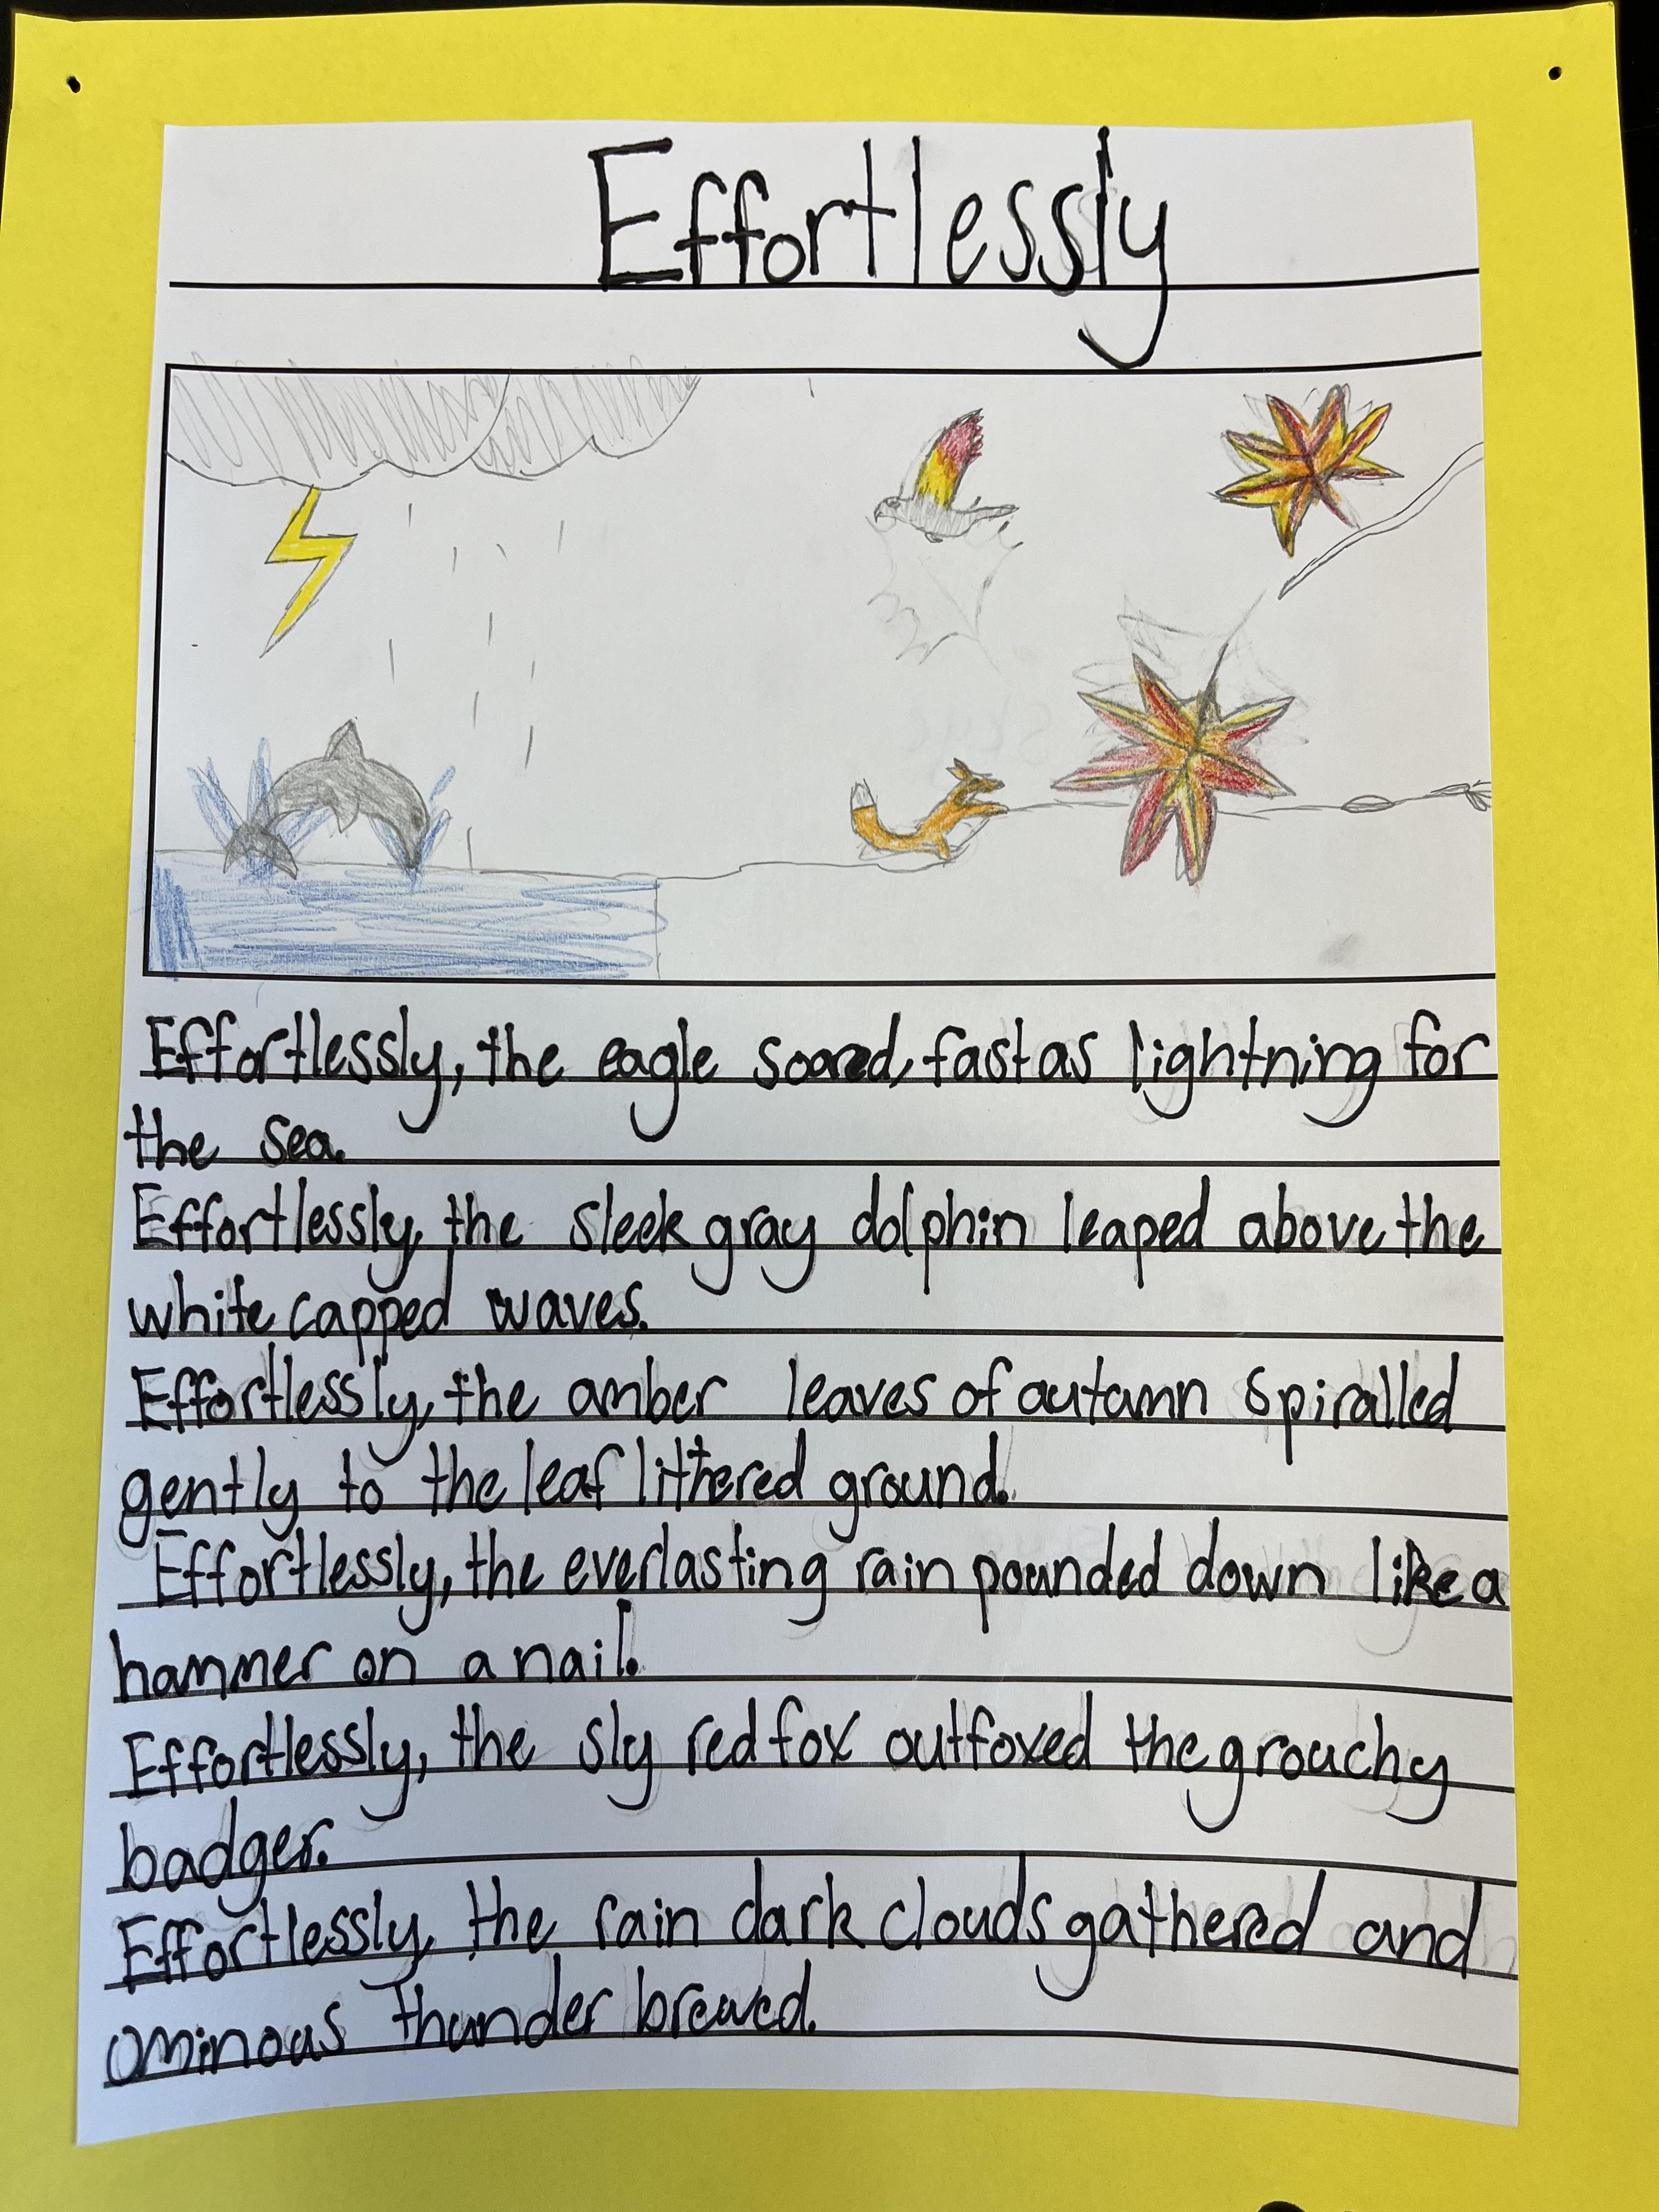 Effortlessly
Effortlessly, the eagle soared, fast as lightning for
the sea.
Effortlessly, the sleek gray dolphin leaped above the
white capped waves.
Effortlessly, the amber leaves of autamn spiralled
gently to the leaf littered ground.
Effortlessly, the everlasting rain pounded down like a
hammer on a nail.
Effortlessly, the sly red fox outfoxed the grouchy
badger.
Effortlessly, the rain dark clouds gathered and
ominous thunder brewed.